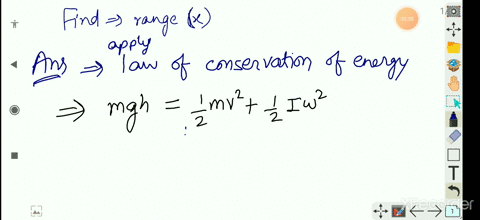 Find ⇒ range (x)
apply
Ans ⇒ law of conservation of energy
⇒ mgh = 1/2 mv² + 1/2 Iω²
T